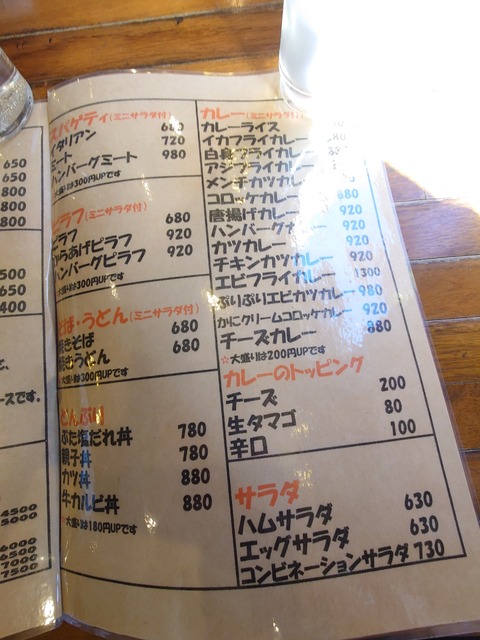 650
650
800
800
800
500
650
400
ースです。
4500
5000
6000
6500
7000
7500
スパゲティ(ミニサラダ付)
イタリアン 680
ミート 720
ハンバーグミート 980
大盛りは300円UPです
ピラフ(ミニサラダ付)
ピラフ 680
からあげピラフ 920
ハンバーグピラフ 920
大盛りは300円UPです
そば・うどん(ミニサラダ付)
焼きそば 680
焼きうどん 680
大盛りは300円UPです
どんぶり
ぶた塩だれ丼 780
親子丼 780
カツ丼 880
牛カルビ丼 880
大盛りは180円UPです
カレー(ミニサラダ付)
カレーライス
イカフライカレー
白身フライカレー
アジフライカレー
メンチカツカレー
コロッケカレー 880
唐揚げカレー 920
ハンバーグカレー 920
カツカレー 920
チキンカツカレー 920
エビフライカレー 1300
ぷりぷりエビカツカレー 980
かにクリームコロッケカレー 920
チーズカレー 880
☆大盛りは200円UPです
カレーのトッピング
チーズ 200
生タマゴ 80
辛口 100
サラダ
ハムサラダ 630
エッグサラダ 630
コンビネーションサラダ 730